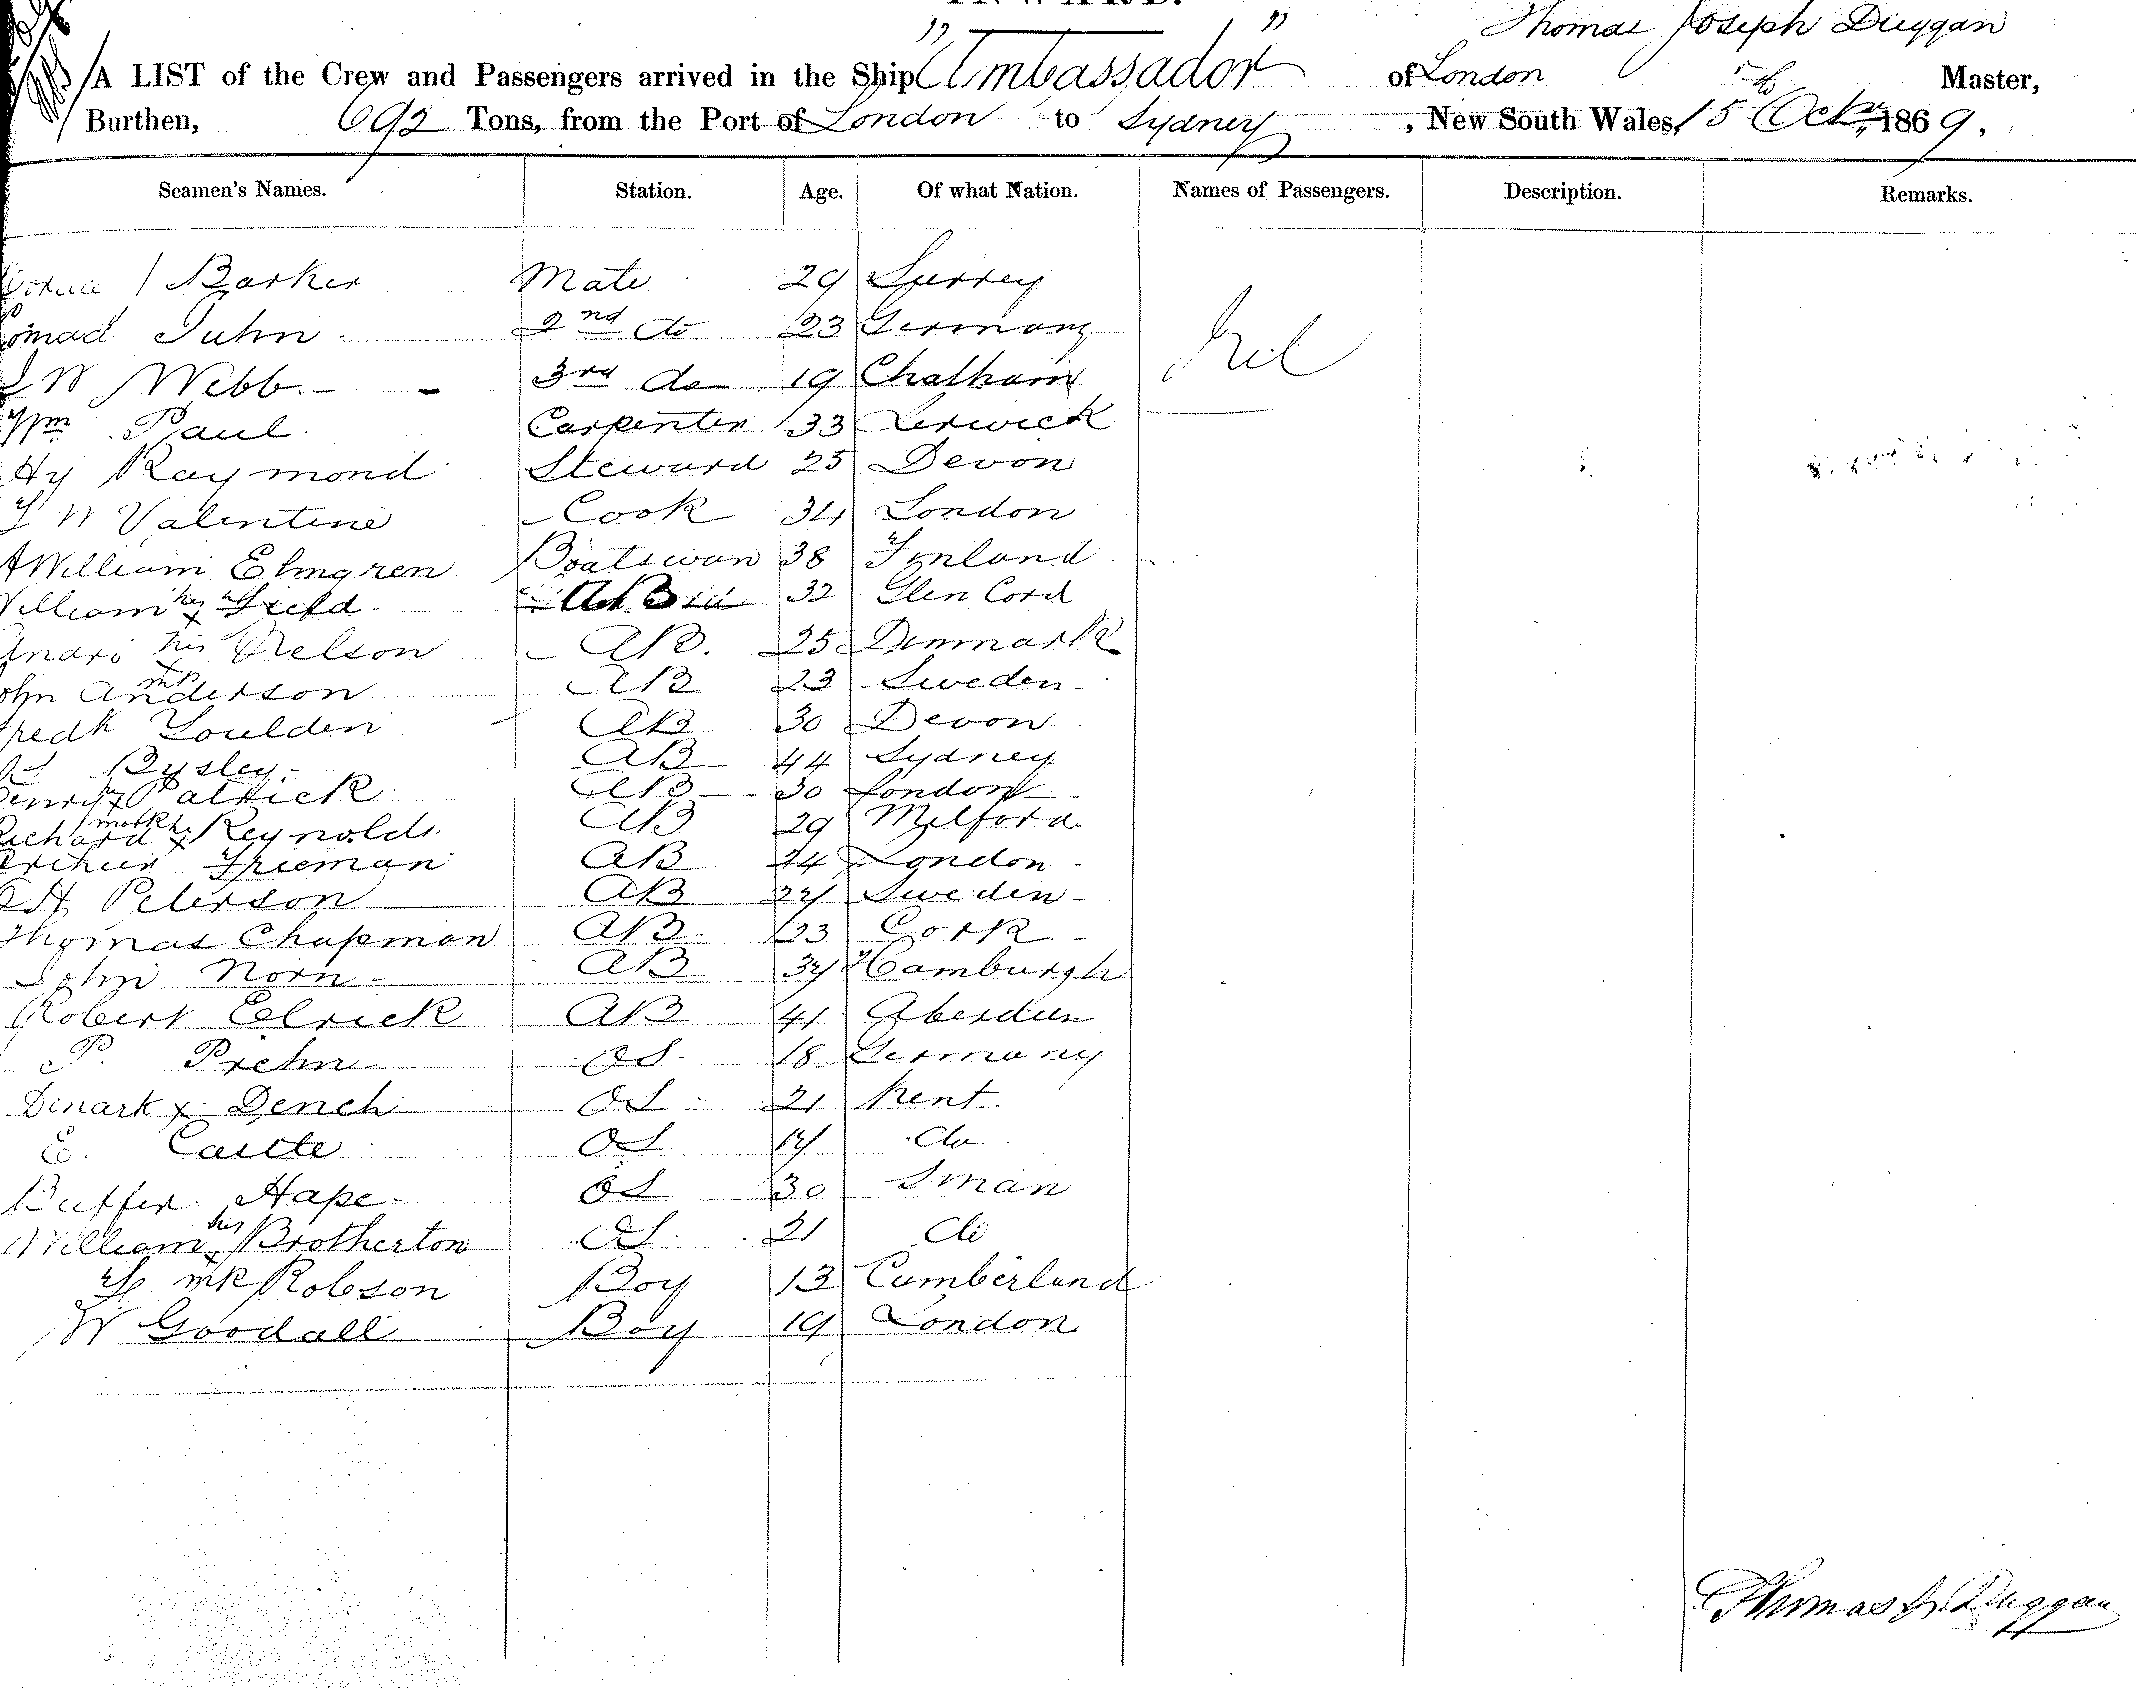 INWARD.
Thomas Joseph Duggan
A LIST of the Crew and Passengers arrived in the Ship "Ambassador" of London Master,
Burthen, 692 Tons, from the Port of London to Sydney, New South Wales, 15th Octr, 1869.
Seamen's Names. Station. Age. Of what Nation. Names of Passengers. Description. Remarks.
Barker Mate 29 Surrey
Juhn 2nd do 23 Germany Nil
W Webb 3rd do 19 Chatham
Wm Paul Carpenter 33 Lerwick
Hy Raymond Steward 25 Devon
W Valentine Cook 34 London
A William Elmgren Boatswan 38 Finland
William his 32 Glen Cord
his Nelson AB. 25 Denmark
John Anderson AB 23 Sweden
Fredk Loulden AB 30 Devon
Bysley. AB 44 Sydney
Henry Patrick AB 30 London
Richard x Reynolds AB 29 Milford
mark
Arthur Frieman AB 24 London
A Peterson AB 27 Sweden
Thomas Chapman AB 23 Cork
John Norn AB 37 Hamburgh
Robert Elrick AB 41 Aberdeen
P. Prehn OS 18 Germany
Denark x Dench OS 21 Kent
E. Castle OS 17 do
Buffer Hape OS 30 Sman
William his x Brotherton OS 21 do
mk Robson Boy 13 Cumberland
W Goodall Boy 19 London
Thomas J. Duggan